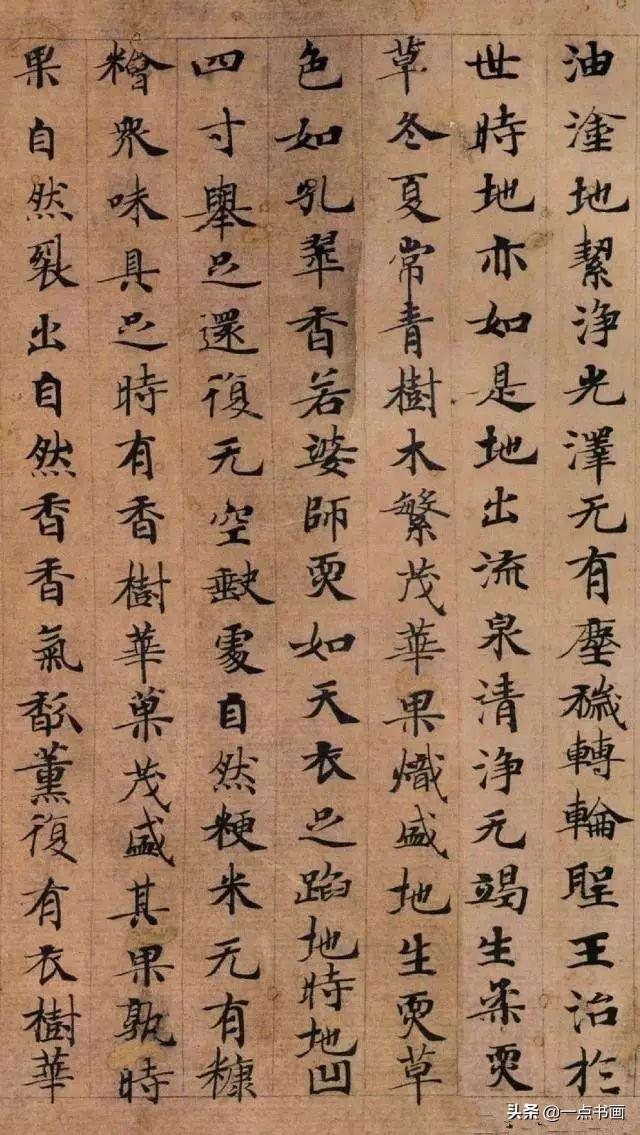 油塗地絜淨光澤无有塵穢轉輪聖王治於
世時地亦如是地出流泉清淨无竭生柔耎
草冬夏常青樹木繁茂華果熾盛地生耎草
色如孔翠香若婆師耎如天衣足蹈地時地凹
四寸舉足還復无空缺處自然粳米无有糠
糩眾味具足時有香樹華菓茂盛其果孰時
果自然裂出自然香香氣馛薰復有衣樹華
头条 @一点书画